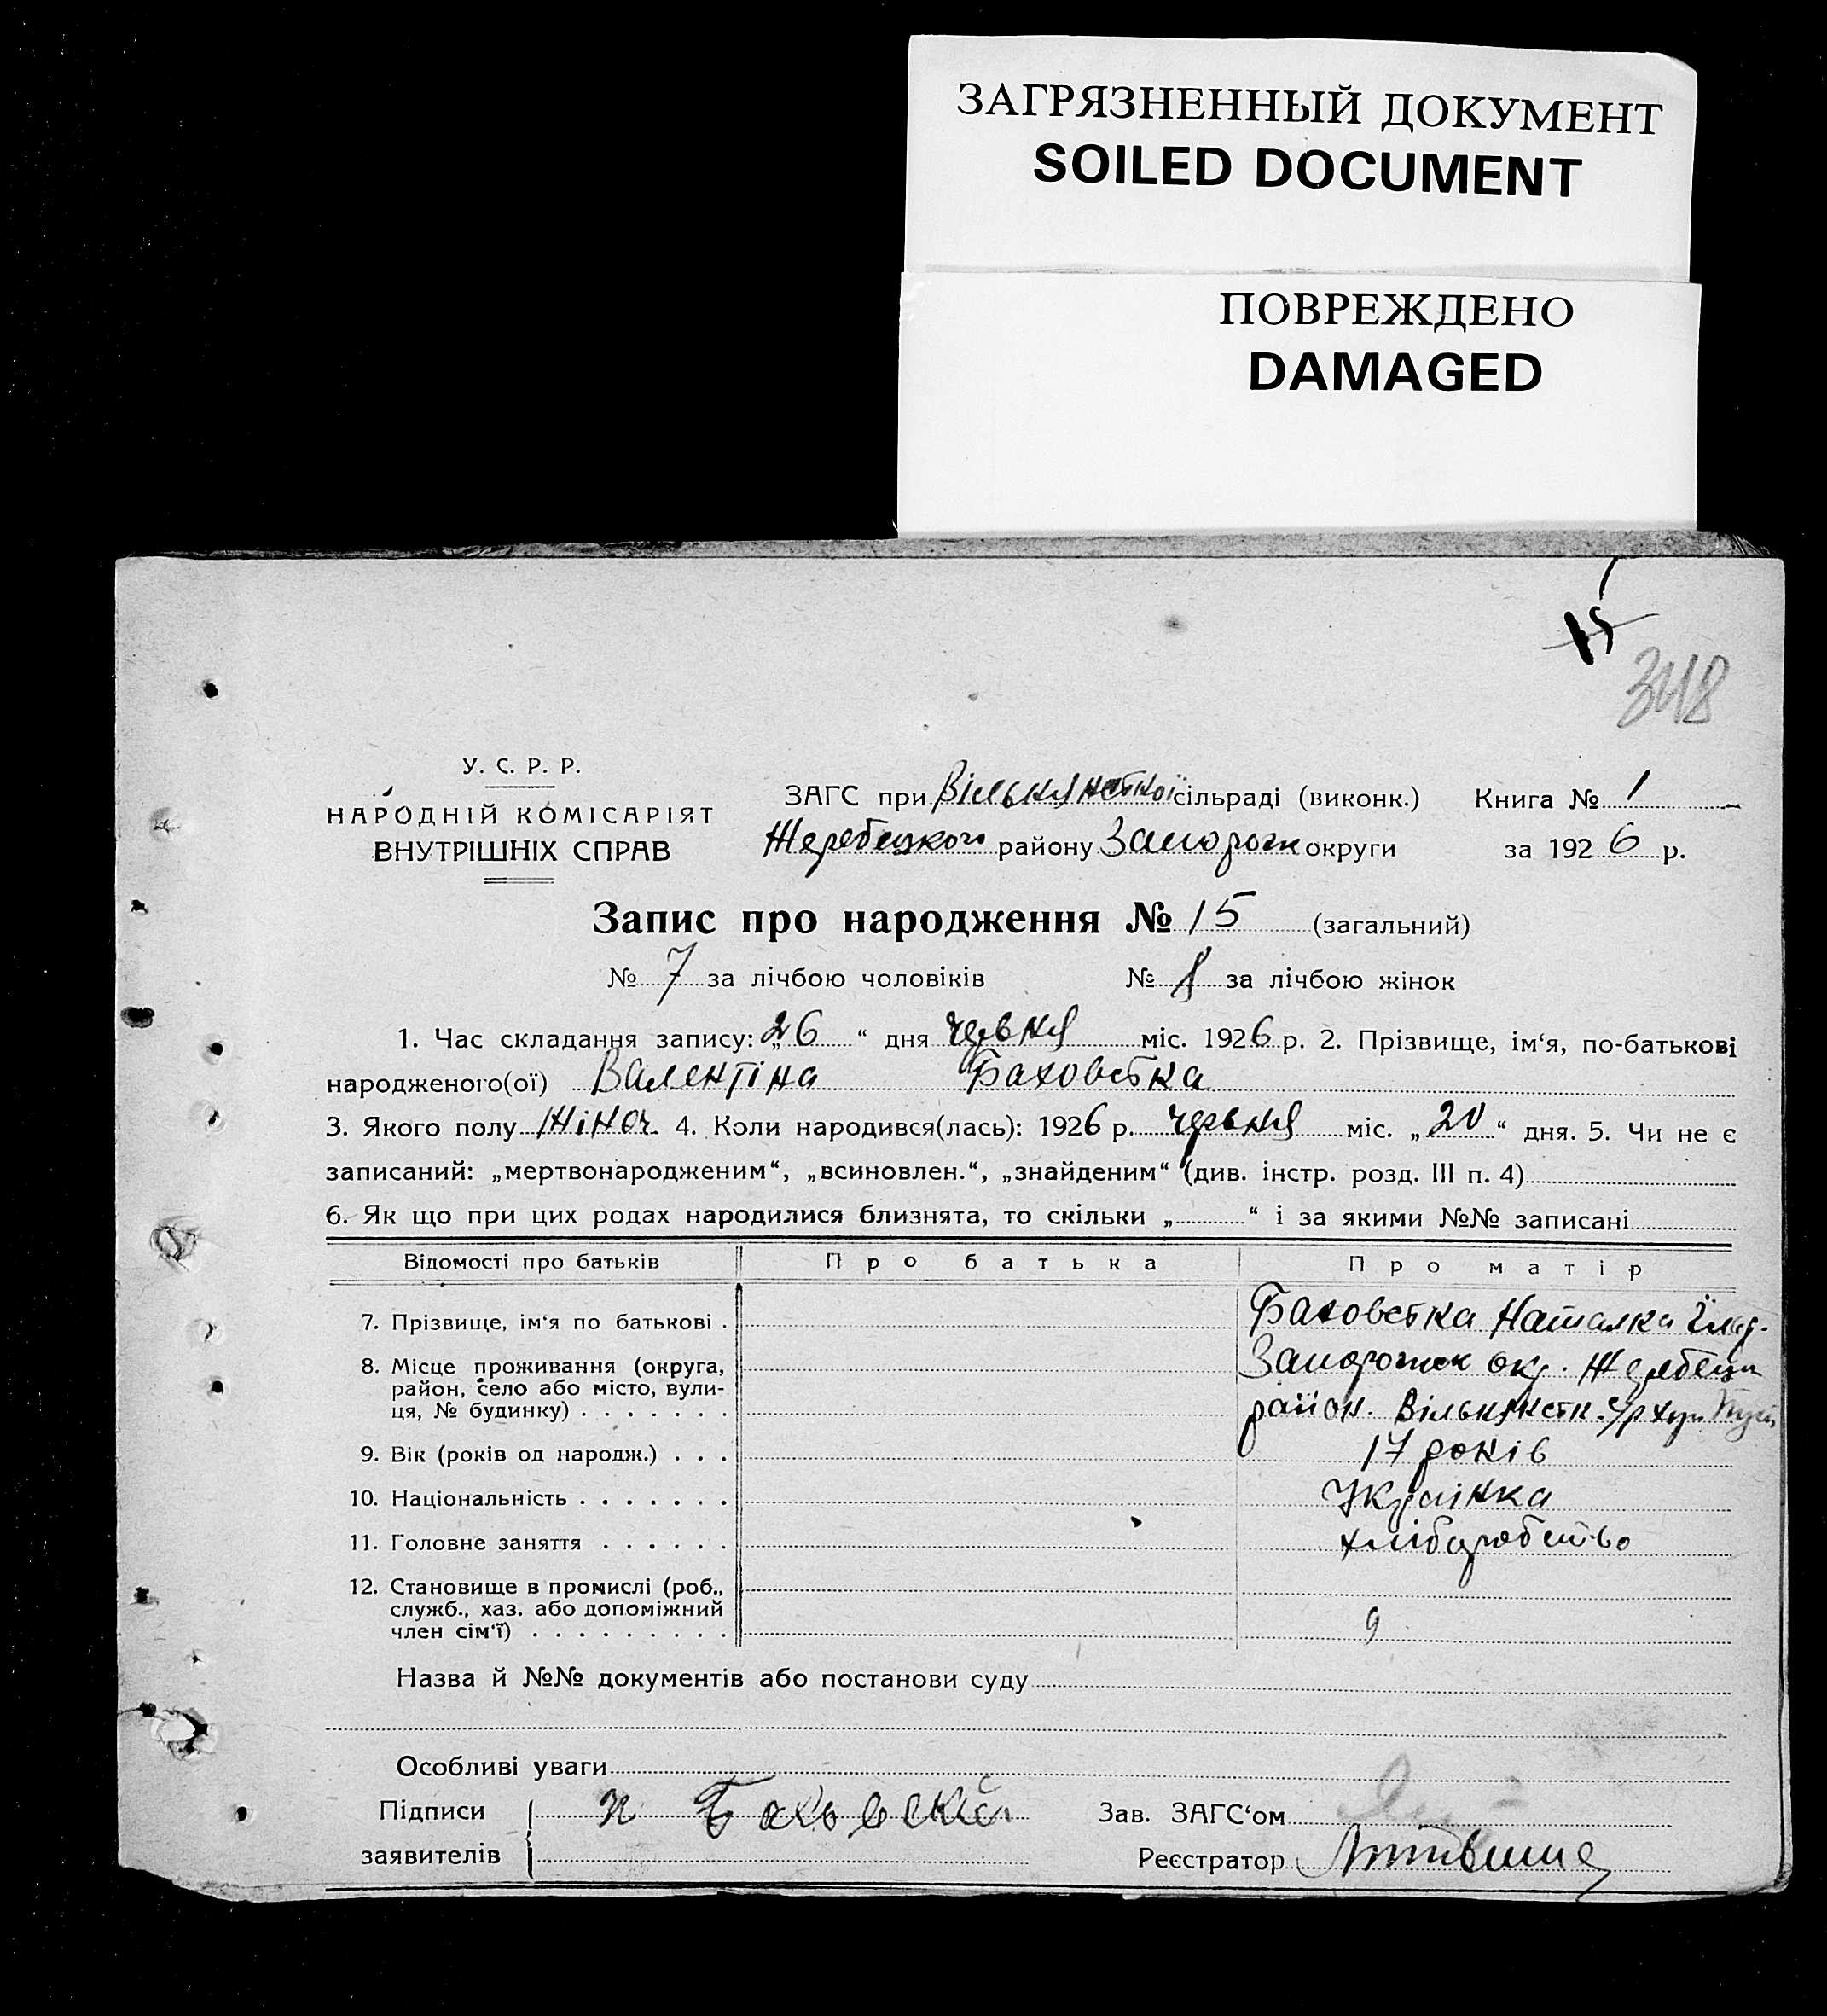 ЗАГРЯЗНЕННЫЙ ДОКУМЕНТ
SOILED DOCUMENT
ПОВРЕЖДЕНО
DAMAGED
15
348
У. С. Р. Р.
НАРОДНІЙ КОМІСАРІЯТ
ВНУТРІШНІХ СПРАВ
ЗАГС при сільраді (виконк.) Книга № 1
Жеребецкого району Запорож округи за 1926 р.
Запис про народження № 15 (загальний)
№ 7 за лічбою чоловіків № 8 за лічбою жінок
1. Час складання запису: „26“ дня червня міс. 1926 р. 2. Прізвище, ім‘я, по-батькові
народженого(ої) Валентіна Баховстка
3. Якого полу Жіноч. 4. Коли народився(лась): 1926 р. червня міс. „20“ дня. 5. Чи не є
записаний: „мертвонародженим“, „всиновлен.“, „знайденим“ (див. інстр. розд. III п. 4)
6. Як що при цих родах народилися близнята, то скільки „ “ і за якими №№ записані
Відомості про батьків Про батька Про матір
7. Прізвище, ім‘я по батькові . Баховстка Наталка
8. Місце проживання (округа, Запорожск окр. Жеребецк
район, село або місто, вули-
ця, № будинку) . . . . . . . район. с/р хут
9. Вік (років од народж.) . . . 17 років
10. Національність . . . . . . . Українка
11. Головне заняття . . . . . . хліборобство
12. Становище в промислі (роб.,
служб., хаз. або допоміжний
член сім‘ї) . . . . . . . . . 9
Назва й №№ документів або постанови суду
Особливі уваги
Підписи
заявителів
Зав. ЗАГС‘ом
Реєстратор